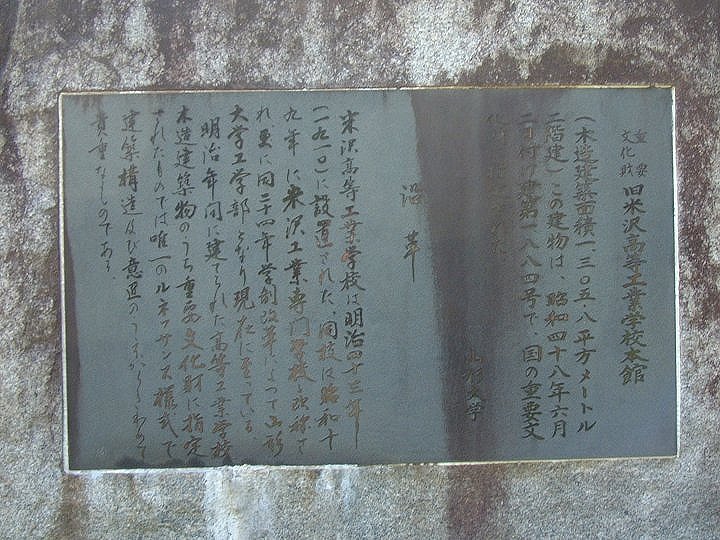 重要
文化財 旧米沢高等工業学校本館
(木造建築面積一、三〇五・八平方メートル
二階建)この建物は、昭和四十八年六月
二日付け建第一八八四号で、国の重要文
山形大学
沿革
米沢高等工業学校は明治四十三年
(一九一〇)に設置された。同校は昭和十
九年に米沢工業専門学校と改称さ
れ更に同二十四年学制改革によって山形
大学工学部となり現在に至っている
明治年間に建てられた高等工業学校
木造建築物のうち重要文化財に指定
されたものでは唯一のルネッサンス様式で
建築構造及び意匠の上からきわめて
貴重なものである